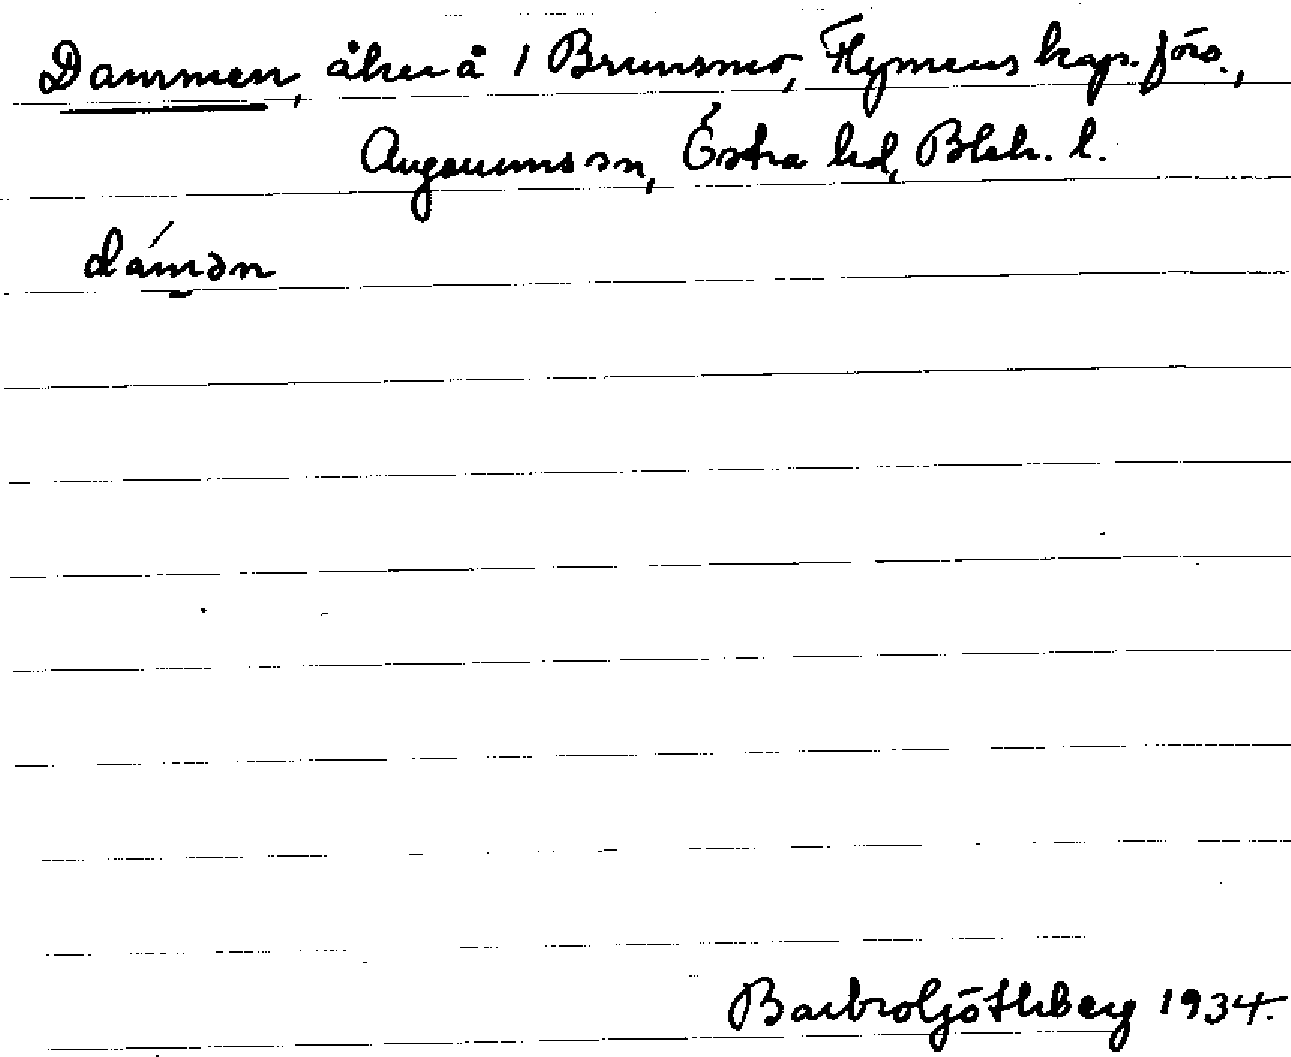 Dammen, åker å 1 Brunsmo, Flymens kap. förs.,
Augerums sn, Östra hd, Blek. l.
dámən
Barbro Göthberg 1934.